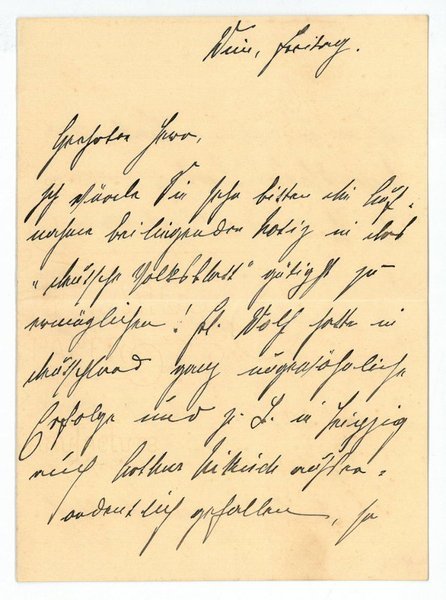 Wien, Freitag.
Geehrter Herr,
ich würde Sie sehr bitten die Auf-
nahme beiliegender Notiz in das
"deutsche Volksblatt" gütigst zu
ermöglichen! Frl. Wolf hatte in
Deutschland ganz ungewöhnliche
Erfolge und z. B. in Leipzig
auch Arthur Nikisch außer-
ordentlich gefallen, so